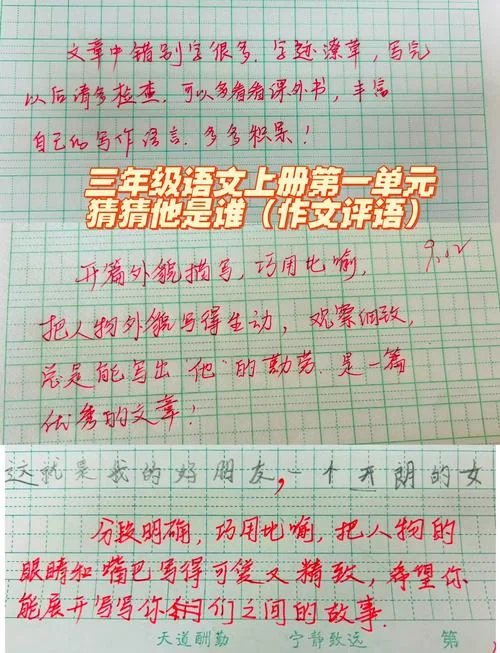 文章中错别字很多，字迹潦草，写完
以后请多检查。可以多看看课外书，丰富
自己的写作语言。多多积累！
三年级语文上册第一单元
猜猜他是谁（作文评语）
9.12
开篇外貌描写，巧用比喻，
把人物外貌写得生动，观察细致，
总是能写出“他”的勤劳。是一篇
优秀的文章！
这就是我的好朋友，一个开朗的女
分段明确，巧用比喻，把人物的
眼睛和嘴巴写得可爱又精致，希望你
能展开写写你们之间的故事.
天道酬勤 宁静致远 第